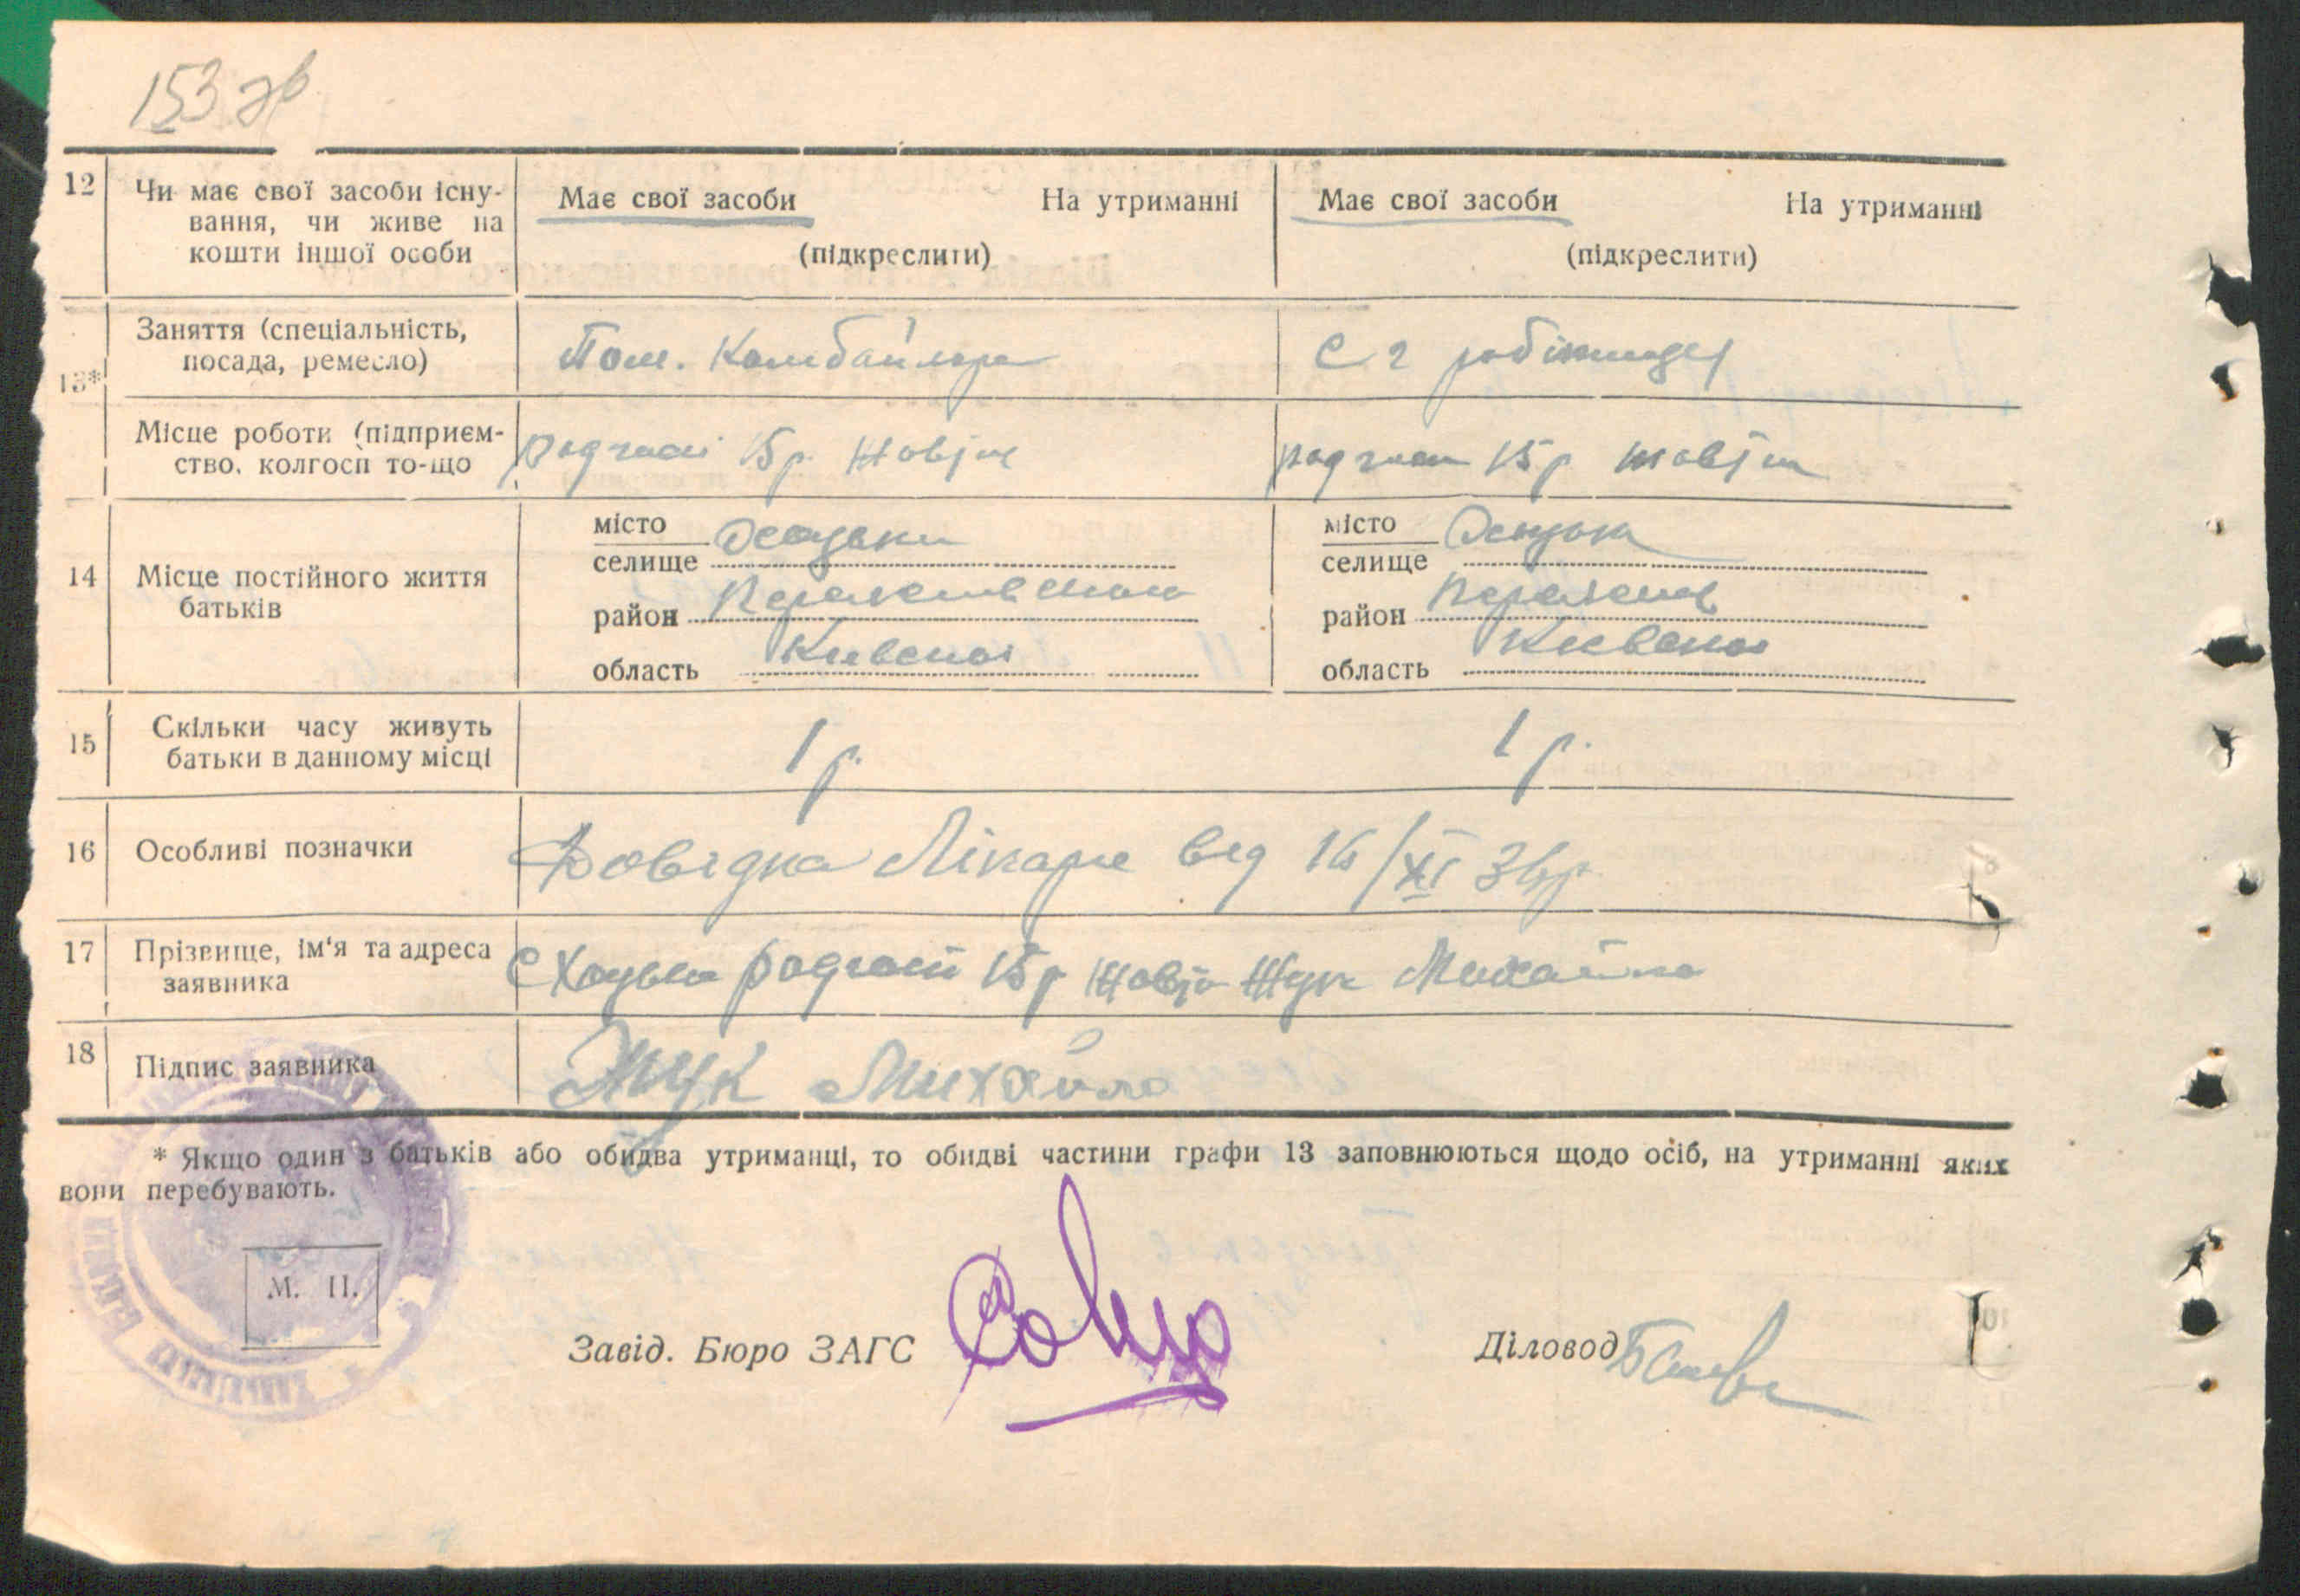 153 зв
12 Чи має свої засоби існу- Має свої засоби На утриманні Має свої засоби На утриманні
вання, чи живе на
кошти іншої особи (підкреслити) (підкреслити)
13* Заняття (спеціальність, Пом. Комбайнера С г робітниця
посада, ремесло)
Місце роботи (підприєм- радгосп 15 р. Жовтня радгосп 15 р Жовтня
ство, колгосп то-що
місто місто
селище селище
14 Місце постійного життя район район
батьків
область Київська область Київська
15 Скільки часу живуть 1 р. 1 р.
батьки в данному місці
16 Особливі позначки Довідка Лікаря від 16/XI 36р.
17 Прізвище, ім'я та адреса радгосп 15 р Жовт Жук Михайло
заявника
18 Підпис заявника Жук Михайло
* Якщо один з батьків або обидва утриманці, то обидві частини графи 13 заповнюються щодо осіб, на утриманні яких
вони перебувають.
М. П.
Завід. Бюро ЗАГС Діловод